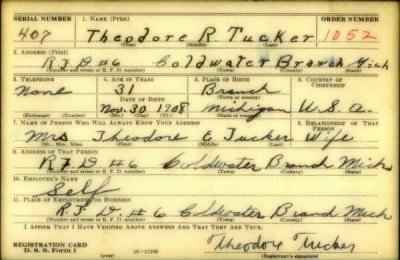 SERIAL NUMBER 1. NAME (Print) ORDER NUMBER
407 Theodore R Tucker 1052
(First) (Middle) (Last)
2. ADDRESS (Print)
R.F.D #6 Coldwater Branch Mich
(Number and street or R. F. D. number) (Town) (County) (State)
3. TELEPHONE 4. AGE IN YEARS 5. PLACE OF BIRTH 6. COUNTRY OF CITIZENSHIP
None 31 Branch
DATE OF BIRTH (Town or county)
Nov. 20 1908 Michigan U.S.A.
(Exchange) (Number) (Mo.) (Day) (Yr.) (State or country)
7. NAME OF PERSON WHO WILL ALWAYS KNOW YOUR ADDRESS 8. RELATIONSHIP OF THAT PERSON
Mrs Theodore E Tucker Wife
(Mr., Mrs., Miss) (First) (Middle) (Last)
9. ADDRESS OF THAT PERSON
R.F.D #6 Coldwater Branch Mich
(Number and street or R. F. D. number) (Town) (County) (State)
10. EMPLOYER'S NAME
Self
11. PLACE OF EMPLOYMENT OR BUSINESS
R.F.D #6 Coldwater Branch Mich
(Number and street or R. F. D. number) (Town) (County) (State)
I AFFIRM THAT I HAVE VERIFIED ABOVE ANSWERS AND THAT THEY ARE TRUE.
REGISTRATION CARD Theodore Tucker
D. S. S. Form 1 (over) (Registrant's signature)